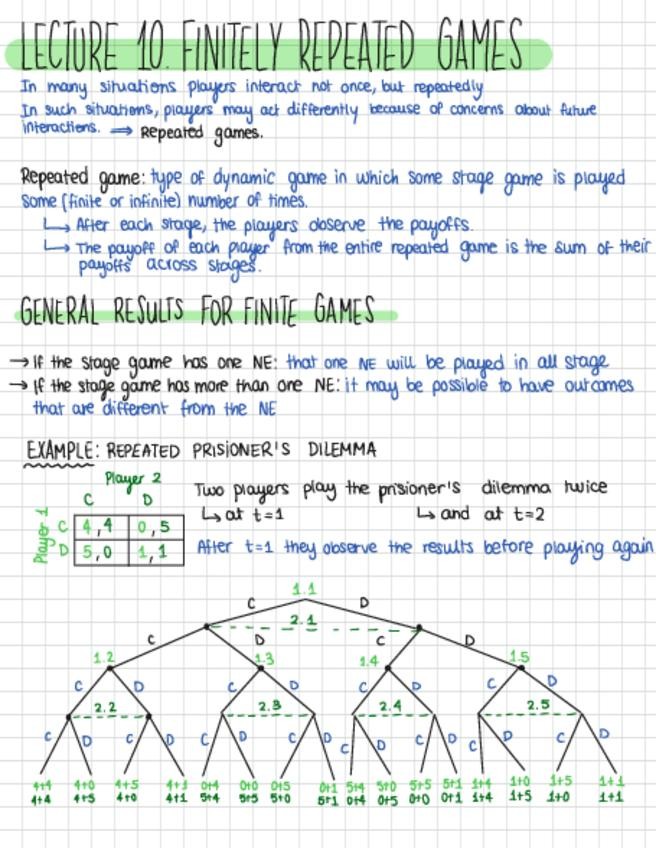 LECTURE 10. FINITELY REPEATED GAMES
In many situations players interact not once, but repeatedly
In such situations, players may act differently because of concerns about future
interactions. ⟹ Repeated games.
Repeated game: type of dynamic game in which some stage game is played
some (finite or infinite) number of times.
↳ After each stage, the players observe the payoffs.
↳ The payoff of each player from the entire repeated game is the sum of their
payoffs across stages.
GENERAL RESULTS FOR FINITE GAMES
→ If the stage game has one NE: that one NE will be played in all stage
→ If the stage game has more than one NE: it may be possible to have outcomes
that are different from the NE
EXAMPLE: REPEATED PRISIONER'S DILEMMA
Player 2
C D
Player 1
C 4,4 0,5
D 5,0 1,1
Two players play the prisioner's dilemma twice
↳ at t=1 ↳ and at t=2
After t=1 they observe the results before playing again
1.1
C D
2.1
C D C D
1.2 1.3 1.4 1.5
C D C D C D C D
2.2 2.3 2.4 2.5
C D C D C D C D C D C D C D C D
4+4 4+0 4+5 4+1 0+4 0+0 0+5 0+1 5+4 5+0 5+5 5+1 1+4 1+0 1+5 1+1
4+4 4+5 4+0 4+1 5+4 5+5 5+0 5+1 0+4 0+5 0+0 0+1 1+4 1+5 1+0 1+1